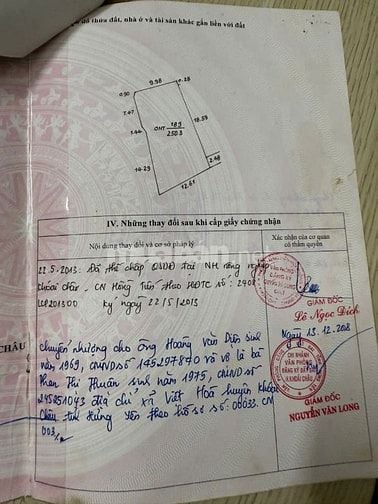 đồ thửa đất, nhà ở và tài sản khác gắn liền với đất
0.90
9.98
0.28
7.47
18.59
ONT 189
250.3
1.44
14.29
2.48
12.61
IV. Những thay đổi sau khi cấp giấy chứng nhận
Nội dung thay đổi và cơ sở pháp lý
Xác nhận của cơ quan
có thẩm quyền
22.5.2013: Đã thế chấp QSDĐ tại NH nông nghiệp
khoái châu, CN Hưng Yên theo HĐTC số: 2908
LCP201300 ký ngày 22/5/2013
VĂN PHÒNG
ĐĂNG KÝ
GIÁM ĐỐC
Lê Ngọc Đích
CHÂU
Ngày 13.12.2018
chuyển nhượng cho ông Hoàng Văn Diện sinh
năm 1969, CMND số 145297870 và vợ là bà
Phan Thị Thuấn sinh năm 1975, CMND số
245851043 địa chỉ xã Việt Hoà huyện Khoái
Châu tỉnh Hưng Yên theo hồ sơ số: 00033.CM
003./.
CHI NHÁNH
VĂN PHÒNG
ĐĂNG KÝ ĐẤT ĐAI
H. KHOÁI CHÂU
GIÁM ĐỐC
NGUYỄN VĂN LONG